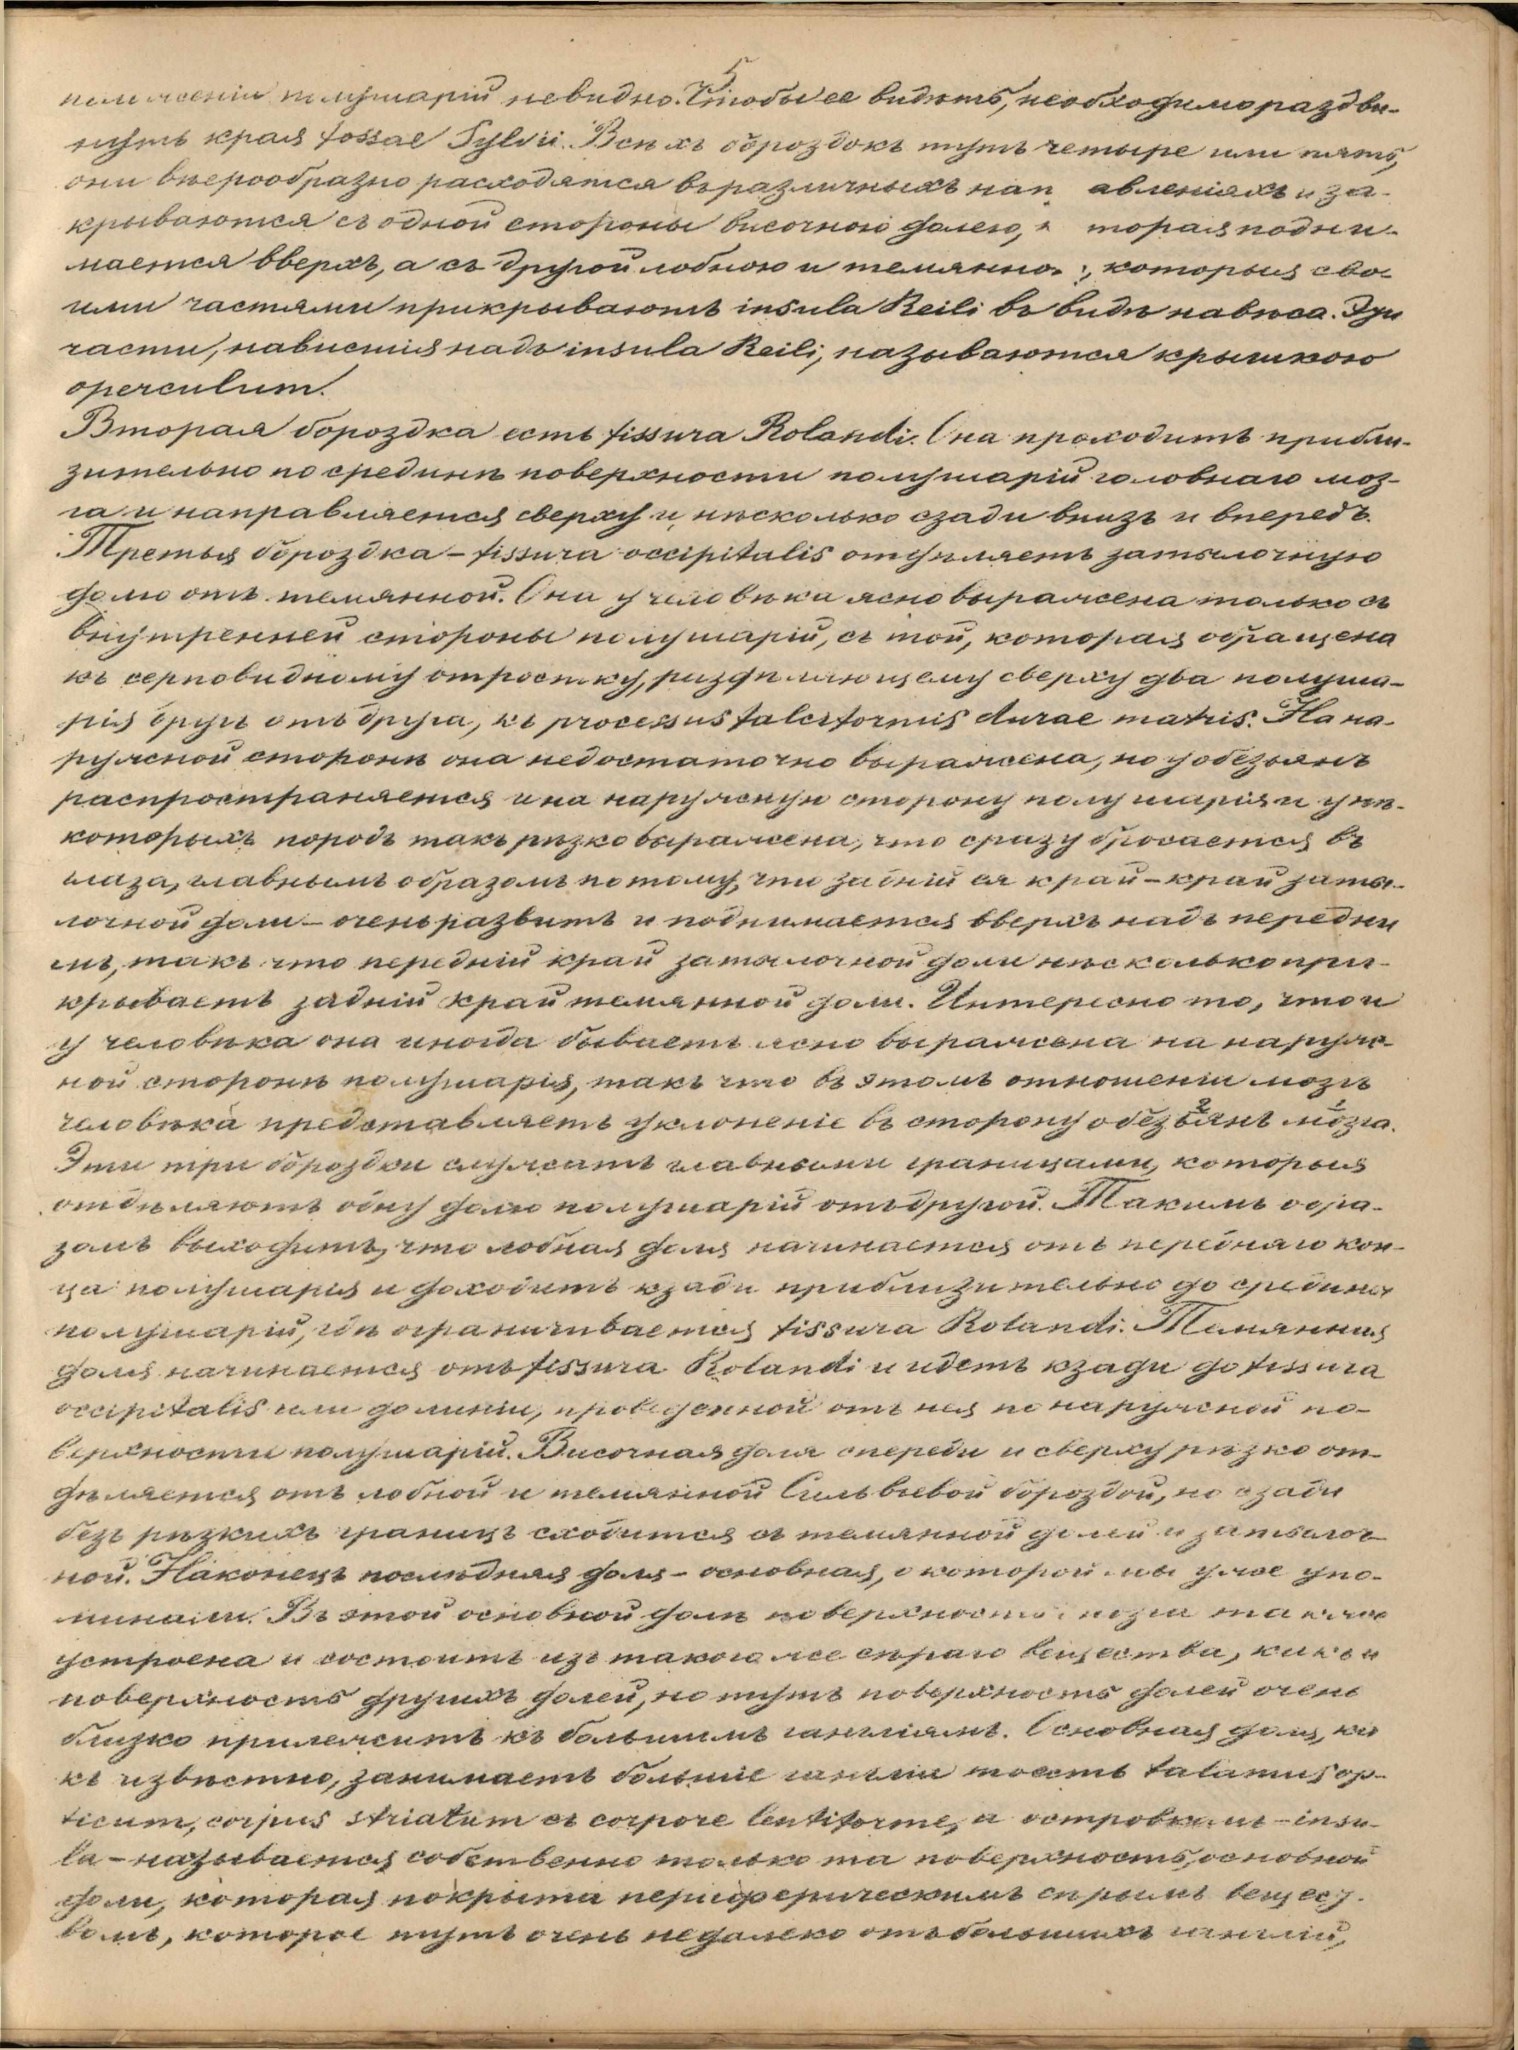 5
положеніи полушарій невидно. Чтобы ее видѣть, необходимо раздви-
нуть края fossae Sylvii. Всѣхъ бороздокъ тутъ четыре или пять,
они вѣерообразно расходятся въ различныхъ нап авленіяхъ и за-
крываются съ одной стороны височною долею, к торая подни-
мается вверхъ, а съ другой лобною и темянно, которыя сво-
ими частями прикрываютъ insula Reili въ видѣ навѣса. Эти
части, нависшія надъ insula Reili, называются крышкою
operculum.
Вторая бороздка есть fissura Rolandi. Она проходитъ прибли-
зительно по срединѣ поверхности полушарій головнаго моз-
га и направляется сверху и нѣсколько сзади внизъ и впередъ.
Третья бороздка – fissura occipitalis отдѣляетъ затылочную
долю отъ темянной. Она у человѣка ясно выражена только съ
внутренней стороны полушарій, съ той, которая обращена
къ серповидному отростку, раздѣляющему сверху два полуша-
рія другъ отъ друга, къ processus falciformis durae matris. На на-
ружной сторонѣ она недостаточно выражена, но у обезьянъ
распространяется и на наружную сторону полушарія и у нѣ-
которыхъ породъ такъ рѣзко выражена, что сразу бросается въ
глаза, главнымъ образомъ потому, что задній ея край – край заты-
лочной доли – очень развитъ и поднимается вверхъ надъ передни
мъ, такъ что передній край затылочной доли нѣсколько при-
крываетъ задній край темянной доли. Интересно то, что и
у человѣка она иногда бываетъ ясно выражена на наруж-
ной сторонѣ полушарія, такъ что въ этомъ отношеніи мозгъ
человѣка представляетъ уклоненіе въ сторону обезьянъ мозга.
Эти три бороздки служатъ главными границами, которыя
отдѣляютъ одну долю полушарій отъ другой. Такимъ обра-
зомъ выходитъ, что лобная доля начинается отъ передняго кон-
ца полушарія и доходитъ кзади приблизительно до средины
полушарій, гдѣ ограничивается fissura Rolandi. Темянная
доля начинается отъ fissura Rolandi и идетъ кзади до fissura
occipitalis или до линіи, проведенной отъ нея по наружной по-
верхности полушарій. Височная доля спереди и сверху рѣзко от-
дѣляется отъ лобной и темянной Сильвіевой бороздой, но сзади
безъ рѣзкихъ границъ сходится съ темянной долей и затылоч-
ной. Наконецъ послѣдняя доля – основная, о которой мы уже упо-
минали. Въ этой основной долѣ поверхность мозга также
устроена и состоитъ изъ такого же сѣраго вещества, какъ и
поверхность другихъ долей, но тутъ поверхность долей очень
близко прилежитъ къ большимъ гангліямъ. Основная доля, ка
къ извѣстно, занимаетъ большіе гангліи тоесть talamus op-
ticum, corpus striatum съ corpore lentiforme, а островкомъ – insu-
la – называется собственно только та поверхность основной
доли, которая покрыта периферическимъ сѣрымъ вещест-
вомъ, которое тутъ очень недалеко отъ большихъ ганглій,